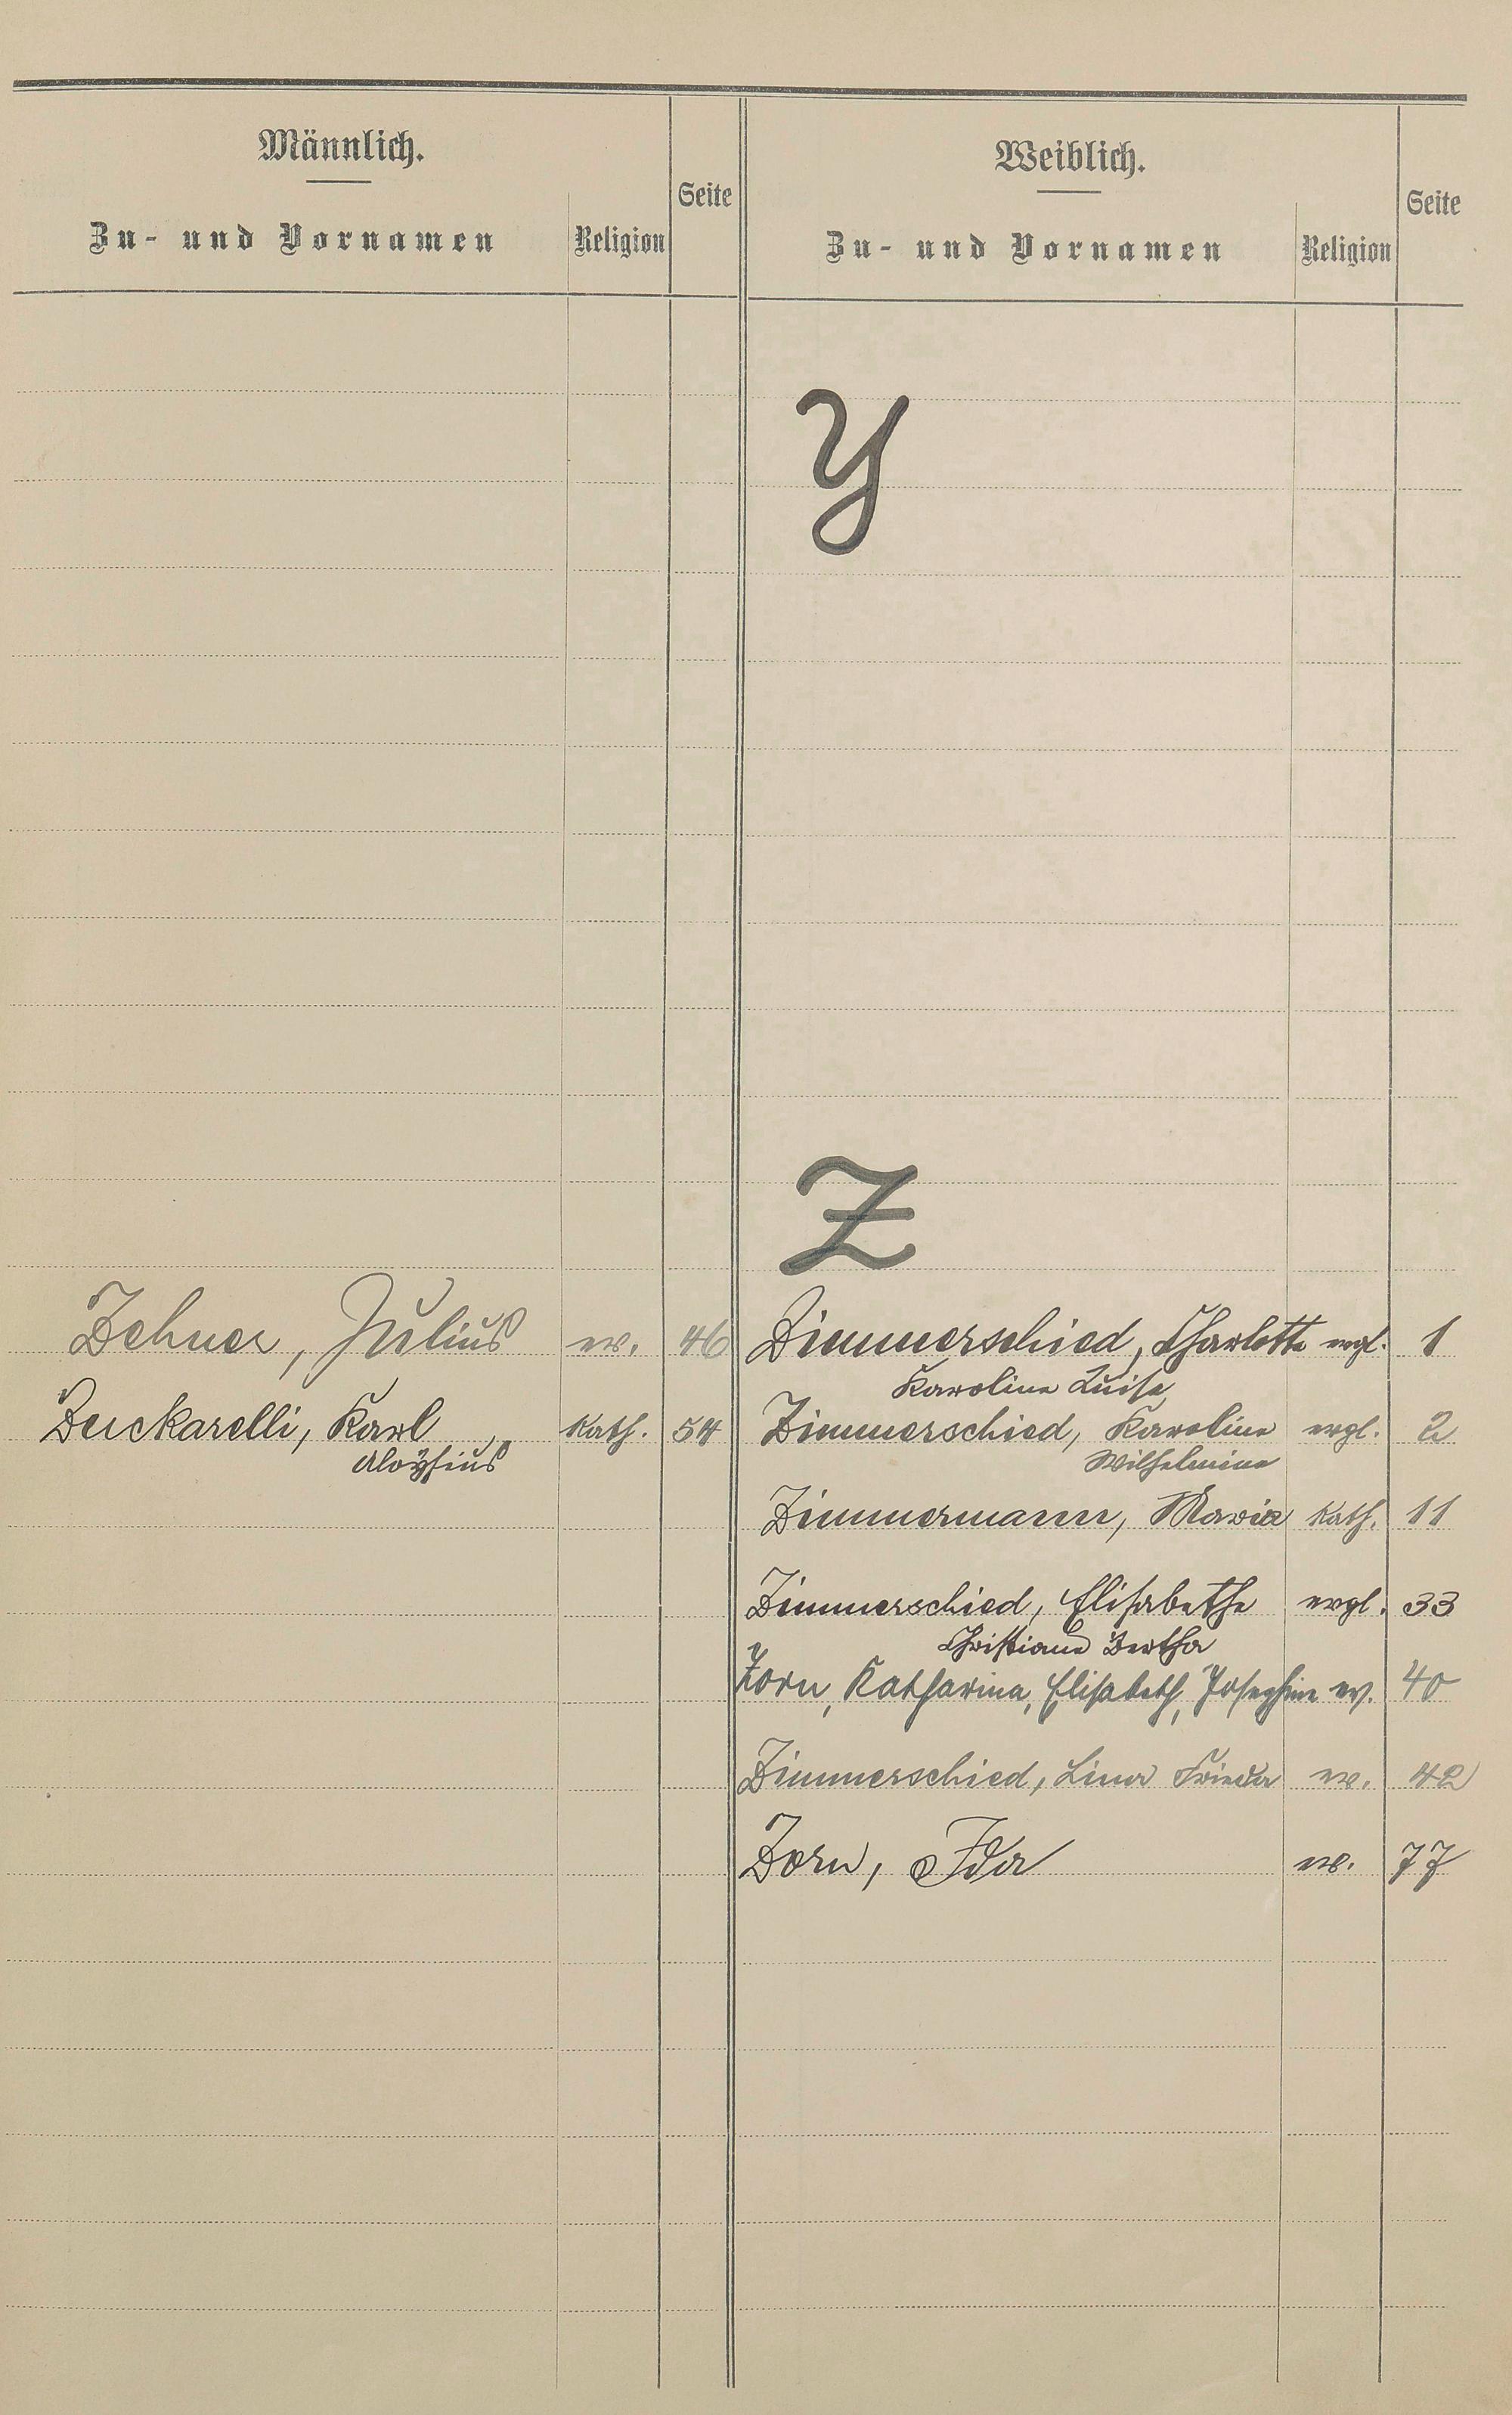 Männlich.
Zu- und Vornamen
Religion
Seite
Weiblich.
Zu- und Vornamen
Religion
Seite
Y
Z
Zehner, Julius ev. 46
Zuckarelli, Karl kath. 54
Aloÿsius
Zimmerschied, Charlotte evgl. 1
Karoline Luise
Zimmerschied, Karoline evgl. 2
Wilhelmine
Zimmermann, Maria kath. 11
Zimmerschied, Elisabethe evgl. 33
Christiane Bertha
Zorn, Katharina, Elisabeth, Josephine ev. 40
Zimmerschied, Lina Frieda ev. 42
Zorn, Ida ev. 77